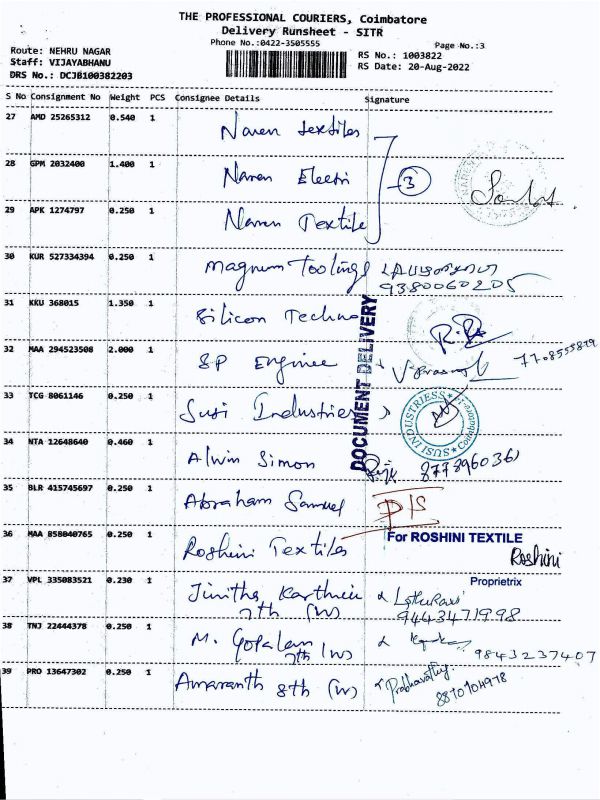 THE PROFESSIONAL COURIERS, Coimbatore
Delivery Runsheet - SITR
Phone No.:0422-3505555
Page No.:3
Route: NEHRU NAGAR
Staff: VIJAYABHANU
DRS No.: DCJB100382203
RS No.: 1003822
RS Date: 20-Aug-2022
S No Consignment No Weight PCS Consignee Details Signature
27 AMD 25265312 0.540 1 Naren textiles
28 GPM 2032400 1.400 1 Naren Electri 3
29 APK 1274797 0.250 1 Naren Textile
30 KUR 527334394 0.250 1 Magnum Toolings
9380060205
31 KKU 368015 1.350 1 Silicon Techno
32 MAA 294523508 2.000 1 SP Enginee
DOCUMENT DELIVERY
33 TCG 8061146 0.250 1 Susi Industries
SUSI INDUSTRIESS
34 NTA 12648640 0.460 1 Alwin Simon
35 BLR 415745697 0.250 1 Abraham Samuel D/S
36 MAA 858040765 0.250 1 Roshini Textiles
For ROSHINI TEXTILE
Roshini
Proprietrix
37 VPL 335083521 0.230 1 Jinitha Karthick
7th (W) 9443471998
38 TNJ 22444378 0.250 1 M. Gopalan
7th (W) 9843237407
39 PRO 13647302 0.250 1 Amaranth 8th (W) Prabhavathy.
8870104978